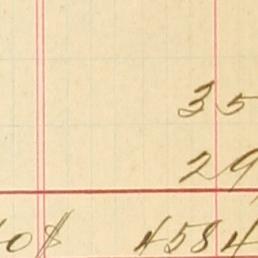 35
29
4584